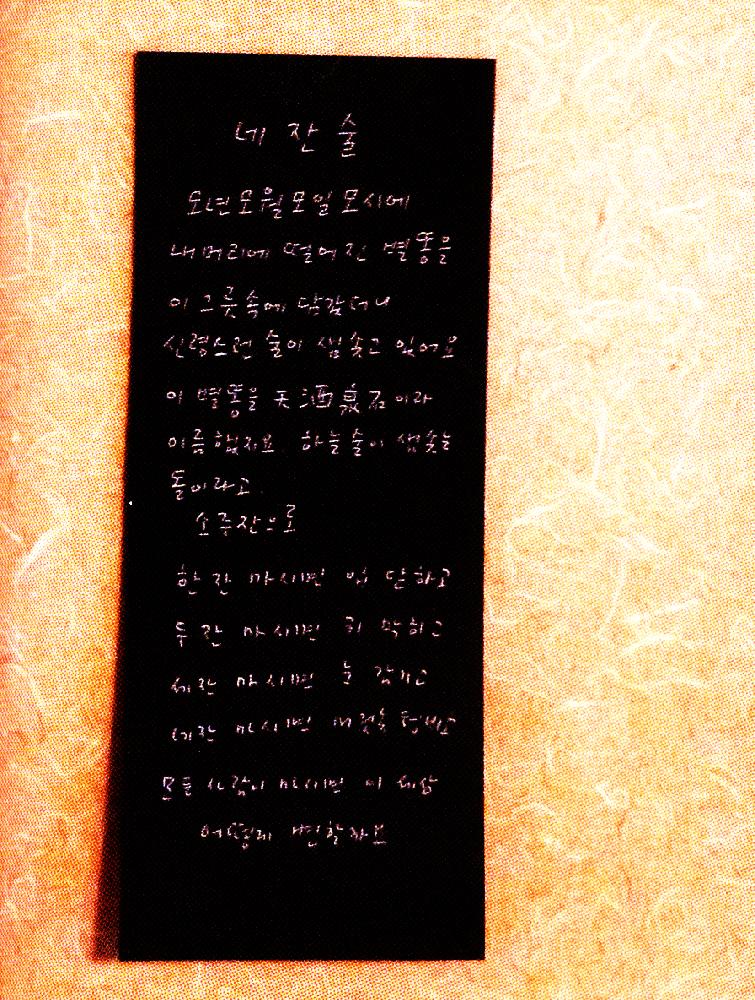 네 잔 술
모년모월모일 모시에
내머리에 떨어진 별똥을
이 그릇속에 담갔더니
신령스런 술이 샘솟고 있어요
이 별똥을 天酒泉石이라
이름했지요. 하늘술이 샘솟는
돌이라고.
소주잔으로
한 잔 마시면 입 닫히고
두 잔 마시면 귀 막히고
세잔 마시면 눈 감기고
네잔 마시면 매것을 텅
모든 사람이 마시면 이 세상
어떻게 변할까요